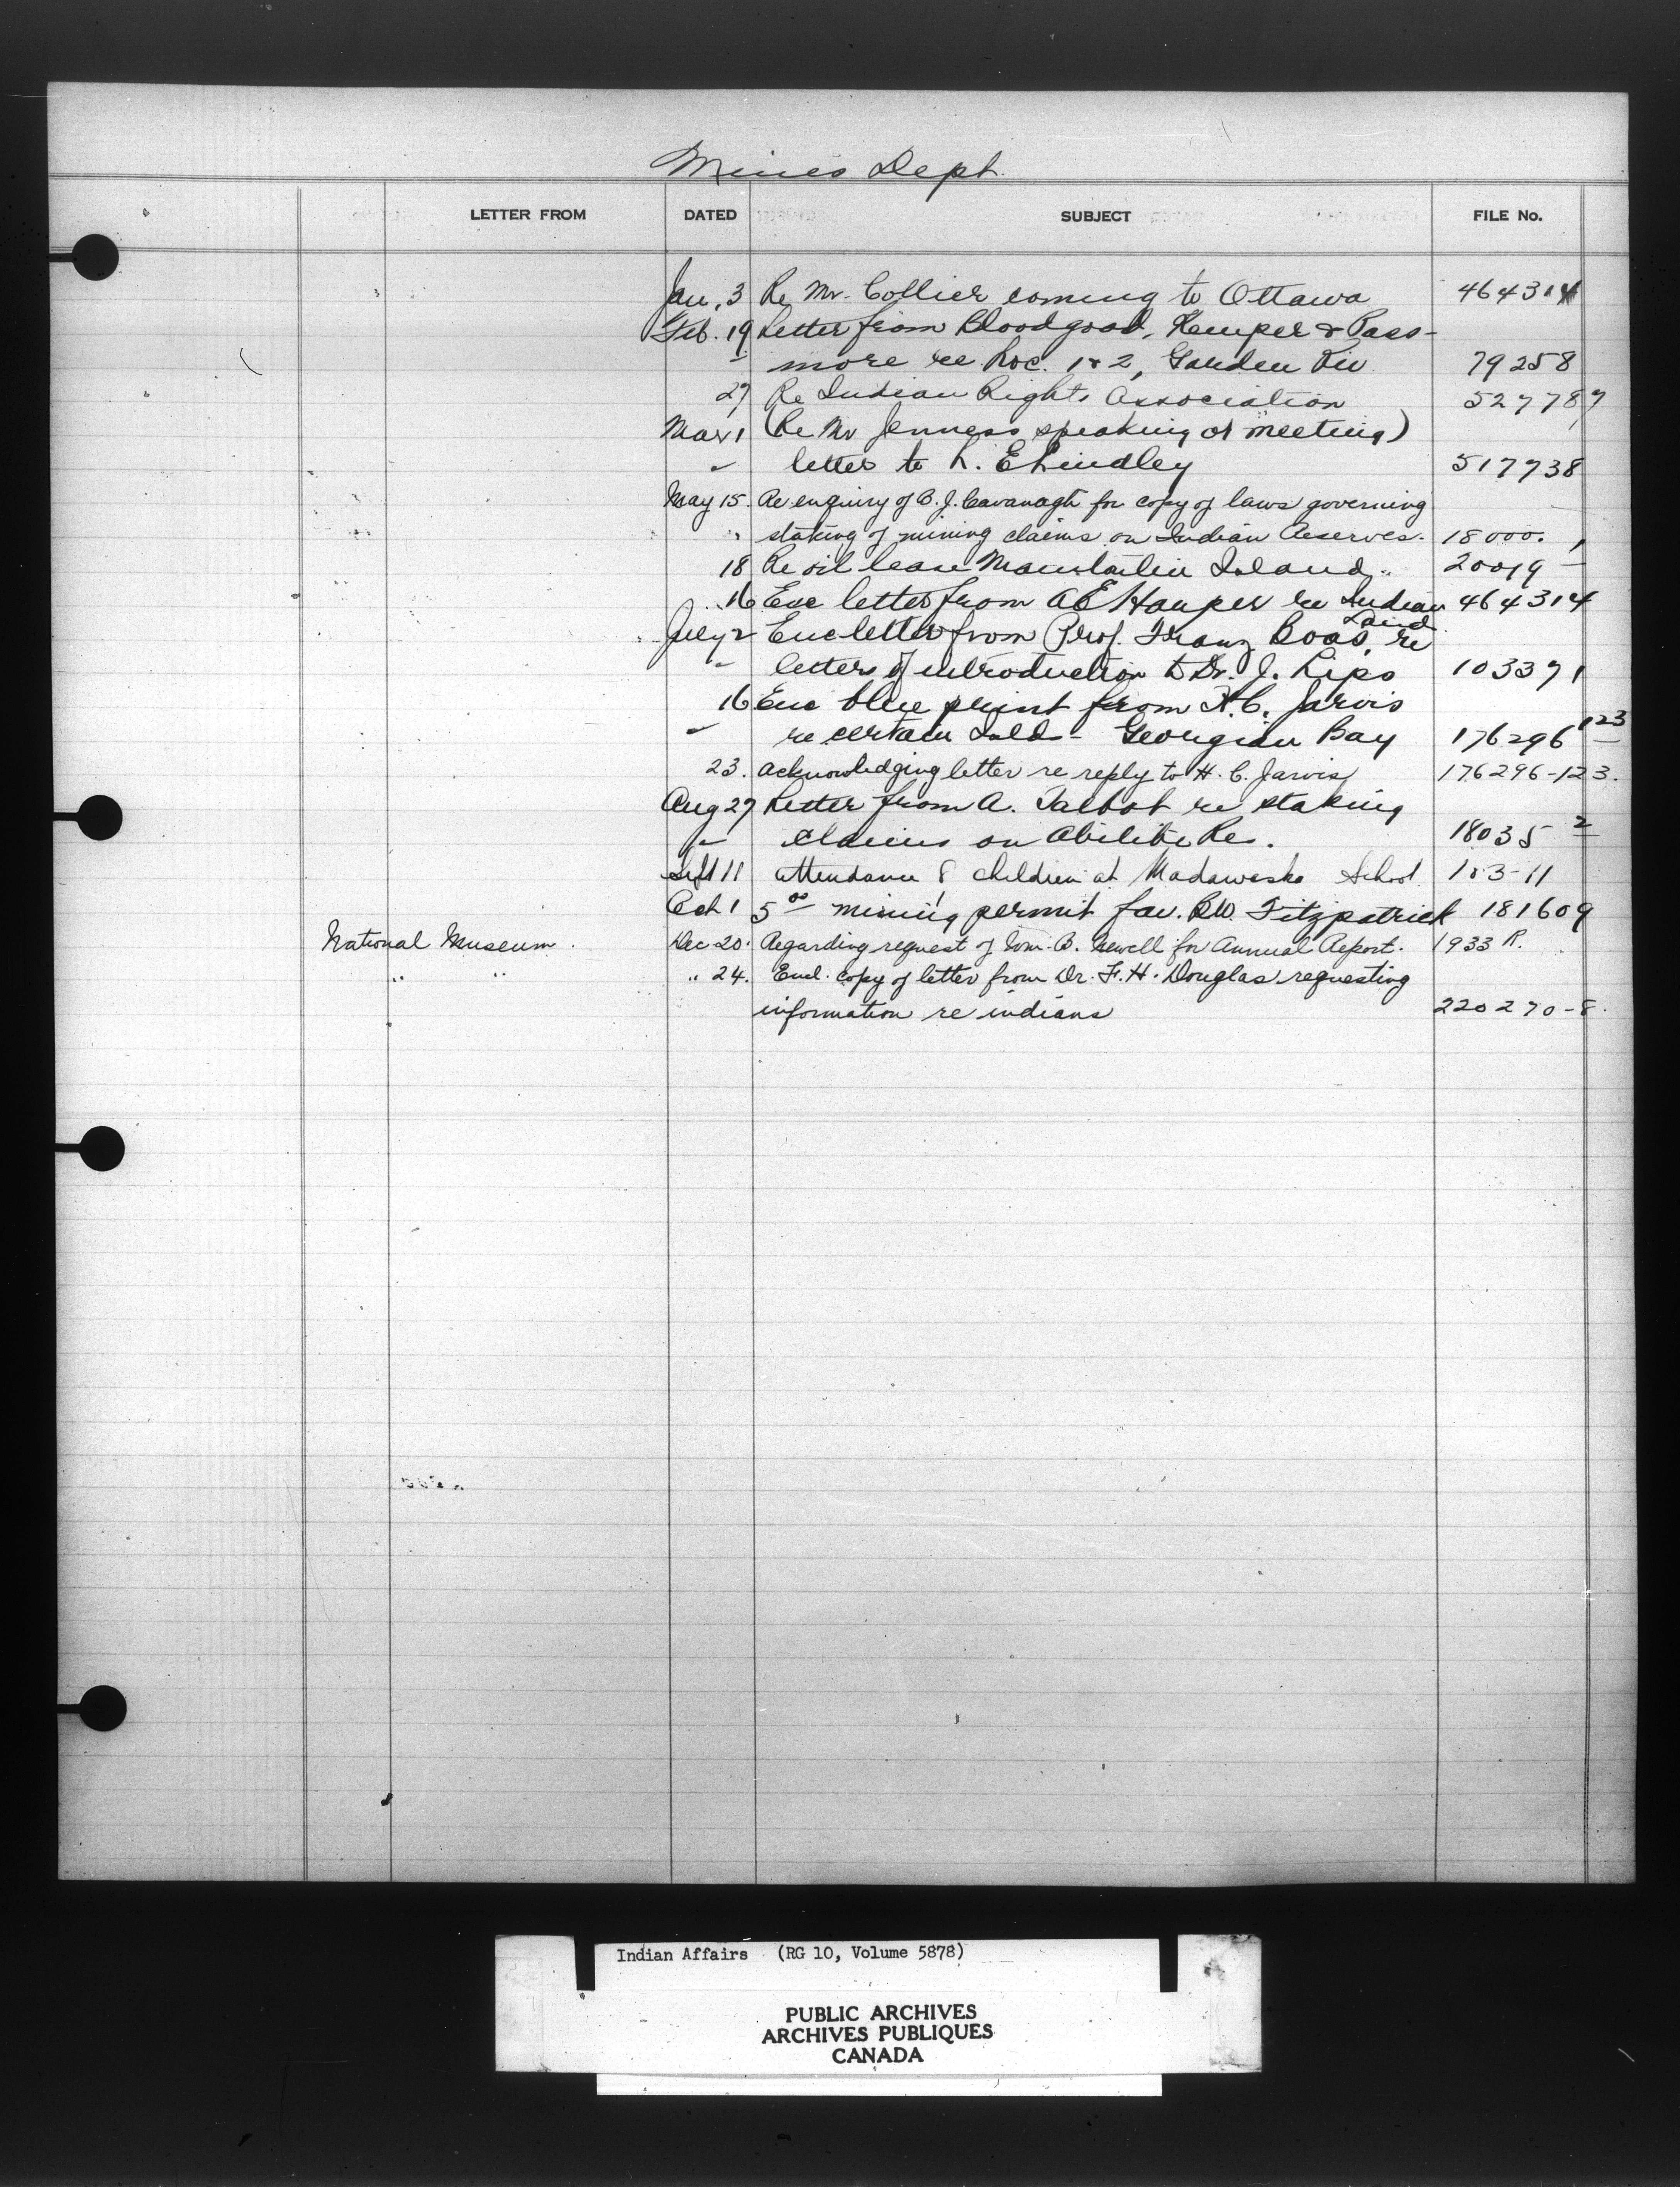 Mines Dept.
LETTER FROM DATED SUBJECT FILE No.
Jan. 3 Re Mr. Collier coming to Ottawa 464314
Feb. 19 Letter from Bloodgood, Kemper & Pass-
" more re Loc. 1 & 2, Garden Riv 79258
27 Re Indian Rights Association 527787
Mar 1 (Re Mr Jenness speaking at meeting)
" letter to L. E Lindley 517738
May 15. Re enquiry of B. J. Cavanagh for copy of laws governing
" staking of mining claims on Indian Reserves. 18000.
18 Re oil lease Manitoulin Island 20019 -
16 Enc letter from A E Harper re Indian 464314
Land
July 2 Enc letter from Prof. Franz Boas, re
" letter of introduction to Dr. J. Lips 103371
16 Enc blue print from H. C. Jarvis
" re certain Islds - Georgian Bay 176296 123
23. Acknowledging letter re reply to H. C. Jarvis 176296-123.
Aug 27 Letter from A. Talbot re staking
" claims on Abitibi Re. 18035 2
Sept 11 attendance of children at Madawaska School 103-11
Oct 1 5 00 mining permit fav. B.W. Fitzpatrick 181609
National Museum. Dec 20. Regarding request of Wm. B. Newell for Annual Report. 1933 R.
" " " 24. Encl. copy of letter from Dr. F. H. Douglas requesting
information re indians 220270-8.
Indian Affairs (RG 10, Volume 5878)
PUBLIC ARCHIVES
ARCHIVES PUBLIQUES
CANADA